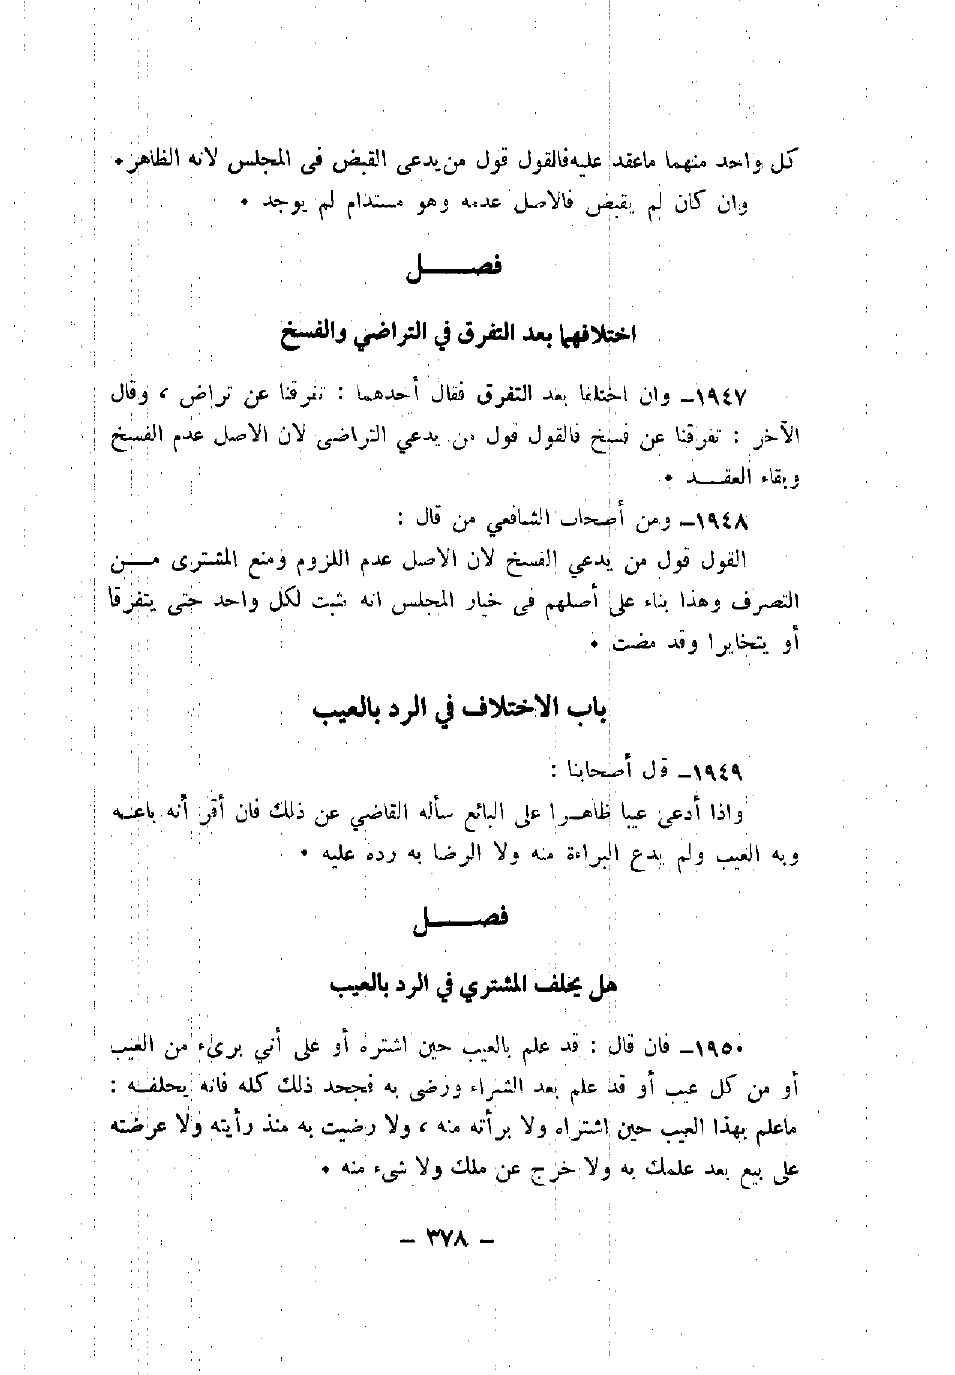 كل واحد منهما ماعقد عليه فالقول قول من يدعى القبض فى المجلس لانه الظاهر ٠
وان كان لم يقبض فالاصل عدمه وهو مستدام لم يوجد ٠
فصـــــل
اختلافهما بعد التفرق في التراضي والفسخ
١٩٤٧ــ وان اختلفا بعد التفرق فقال أحدهما : تفرقنا عن تراض ، وقال
الآخر : تفرقنا عن فسخ فالقول قول من يدعي التراضى لان الاصل عدم الفسخ
وبقاء العقـــد ٠
١٩٤٨ــ ومن أصحاب الشافعي من قال :
القول قول من يدعي الفسخ لان الاصل عدم اللزوم ومنع المشترى مــن
التصرف وهذا بناء على أصلهم فى خيار المجلس انه ثبت لكل واحد حتى يتفرقا
أو يتخايرا وقد مضت ٠
باب الاختلاف في الرد بالعيب
١٩٤٩ــ قال أصحابنا :
واذا أدعى عيبا ظاهــرا على البائع سأله القاضي عن ذلك فان أقر أنه باعــه
وبه العيب ولم يدع البراءة منه ولا الرضا به رده عليه ٠
فصـــــل
هل يحلف المشتري في الرد بالعيب
١٩٥٠ــ فان قال : قد علم بالعيب حين اشتره أو على أني برىء من العيب
أو من كل عيب أو قد علم بعد الشراء ورضى به فجحد ذلك كله فانه يحلفــه :
ماعلم بهذا العيب حين اشتراه ولا برأته منه ، ولا رضيت به منذ رأيته ولا عرضته
على بيع بعد علمك به ولا خرج عن ملك ولا شىء منه ٠
– ٣٧٨ –